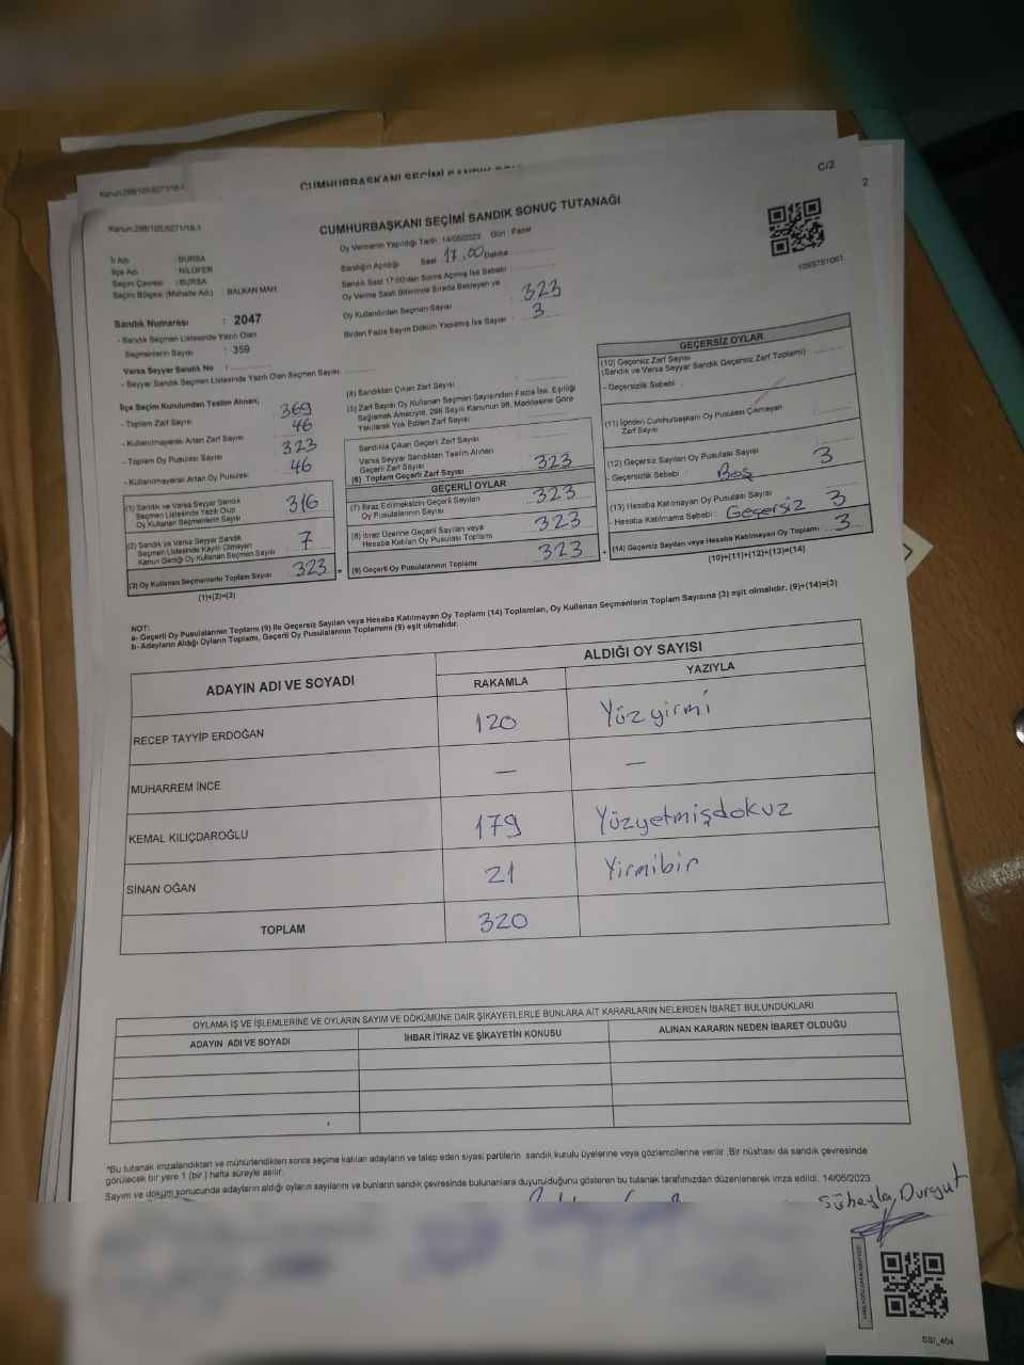 CUMHURBAŞKANI SEÇİMİ
C/2
2
Kanun:298/105,6271/18-1
CUMHURBAŞKANI SEÇİMİ SANDIK SONUÇ TUTANAĞI
Oy Vermenin Yapıldığı Tarih :14/05/2023 Gün : Pazar
İl Adı : BURSA
İlçe Adı : NİLÜFER
Seçim Çevresi : BURSA
Seçim Bölgesi (Mahalle Adı) : BALKAN MAH.
Sandığın Açıldığı Saat 17.00 Dakika
Sandık Saat 17:00'den Sonra Açılmış İse Sebebi
Oy Verme Saati Bitiminde Sırada Bekleyen ve
Oy Kullandırılan Seçmen Sayısı : 323
Birden Fazla Sayım Döküm Yapılmış İse Sayısı : 3
1095751061
Sandık Numarası : 2047
- Sandık Seçmen Listesinde Yazılı Olan
Seçmenlerin Sayısı : 359
Varsa Seyyar Sandık No :
- Seyyar Sandık Seçmen Listesinde Yazılı Olan Seçmen Sayısı
İlçe Seçim Kurulundan Teslim Alınan;
- Toplam Zarf Sayısı 369
- Kullanılmayarak Artan Zarf Sayısı 46
- Toplam Oy Pusulası Sayısı 323
- Kullanılmayarak Artan Oy Pusulası 46
(1) Sandık ve Varsa Seyyar Sandık
Seçmen Listesinde Yazılı Olup
Oy Kullanan Seçmenlerin Sayısı 316
(2) Sandık ve Varsa Seyyar Sandık
Seçmen Listesinde Kayıtlı Olmayan
Kanun Gereği Oy Kullanan Seçmen Sayısı 7
(3) Oy Kullanan Seçmenlerin Toplam Sayısı 323
(1)+(2)=(3)
(4) Sandıktan Çıkan Zarf Sayısı :
(5) Zarf Sayısı Oy Kullanan Seçmen Sayısından Fazla İse, Eşitliği
Sağlamak Amacıyla, 298 Sayılı Kanunun 98. Maddesine Göre
Yakılarak Yok Edilen Zarf Sayısı
Sandıkta Çıkan Geçerli Zarf Sayısı
Varsa Seyyar Sandıktan Teslim Alınan
Geçerli Zarf Sayısı
(6) Toplam Geçerli Zarf Sayısı 323
GEÇERLİ OYLAR
(7) İtiraz Edilmeksizin Geçerli Sayılan
Oy Pusulalarının Sayısı 323
(8) İtiraz Üzerine Geçerli Sayılan veya
Hesaba Katılan Oy Pusulası Toplamı 323
(9) Geçerli Oy Pusulalarının Toplamı 323
GEÇERSİZ OYLAR
(10) Geçersiz Zarf Sayısı
(Sandık ve Varsa Seyyar Sandık Geçersiz Zarf Toplamı)
- Geçersizlik Sebebi :
(11) İçinden Cumhurbaşkanı Oy Pusulası Çıkmayan
Zarf Sayısı
(12) Geçersiz Sayılan Oy Pusulası Sayısı 3
- Geçersizlik Sebebi : Boş
(13) Hesaba Katılmayan Oy Pusulası Sayısı 3
- Hesaba Katılmama Sebebi : Geçersiz
(14) Geçersiz Sayılan veya Hesaba Katılmayan Oy Toplamı 3
(10)+(11)+(12)+(13)=(14)
NOT:
a- Geçerli Oy Pusulalarının Toplamı (9) ile Geçersiz Sayılan veya Hesaba Katılmayan Oy Toplamı (14) Toplamları, Oy Kullanan Seçmenlerin Toplam Sayısına (3) eşit olmalıdır. (9)+(14)=(3)
b- Adayların Aldığı Oyların Toplamı, Geçerli Oy Pusulalarının Toplamına (9) eşit olmalıdır.
ADAYIN ADI VE SOYADI
ALDIĞI OY SAYISI
RAKAMLA YAZIYLA
RECEP TAYYİP ERDOĞAN 120 Yüzyirmi
MUHARREM İNCE — —
KEMAL KILIÇDAROĞLU 179 Yüzyetmişdokuz
SİNAN OĞAN 21 Yirmibir
TOPLAM 320
OYLAMA İŞ VE İŞLEMLERİNE VE OYLARIN SAYIM VE DÖKÜMÜNE DAİR ŞİKAYETLERLE BUNLARA AİT KARARLARIN NELERDEN İBARET BULUNDUKLARI
ADAYIN ADI VE SOYADI İHBAR İTİRAZ VE ŞİKAYETİN KONUSU ALINAN KARARIN NEDEN İBARET OLDUĞU
"Bu tutanak imzalandıktan ve mühürlendikten sonra seçime katılan adayların ve talep eden siyasi partilerin sandık kurulu üyelerine veya gözlemcilerine verilir .Bir nüshası da sandık çevresinde
görülecek bir yere 1 (bir) hafta süreyle asılır.
Sayım ve döküm sonucunda adayların aldığı oyların sayılarını ve bunların sandık çevresinde bulunanlara duyurulduğunu gösteren bu tutanak tarafımızdan düzenlenerek imza edildi. 14/05/2023
Süheyla Durgut
SSI_404